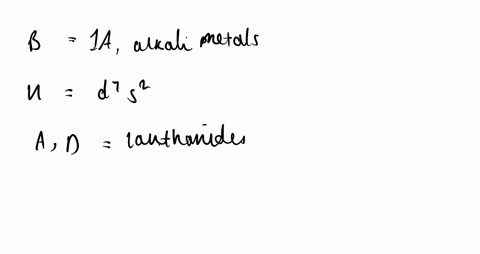 B = 1A, alkali metals
U = d⁷ s²
A, D = lanthanides